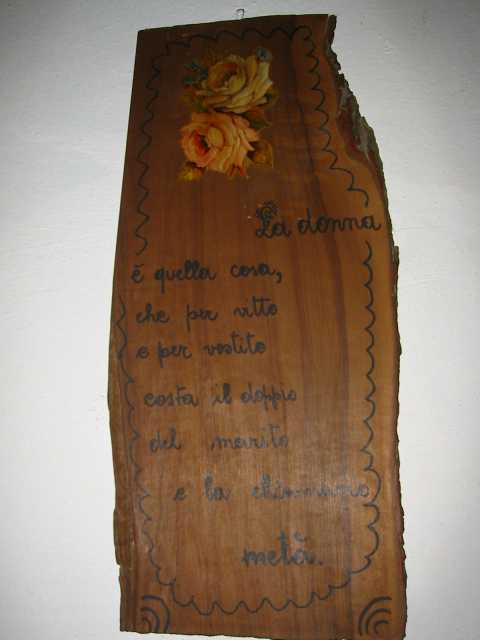 La donna
è quella cosa,
che per vitto
e per vestito
costa il doppio
del marito
e la chiamano
metà.